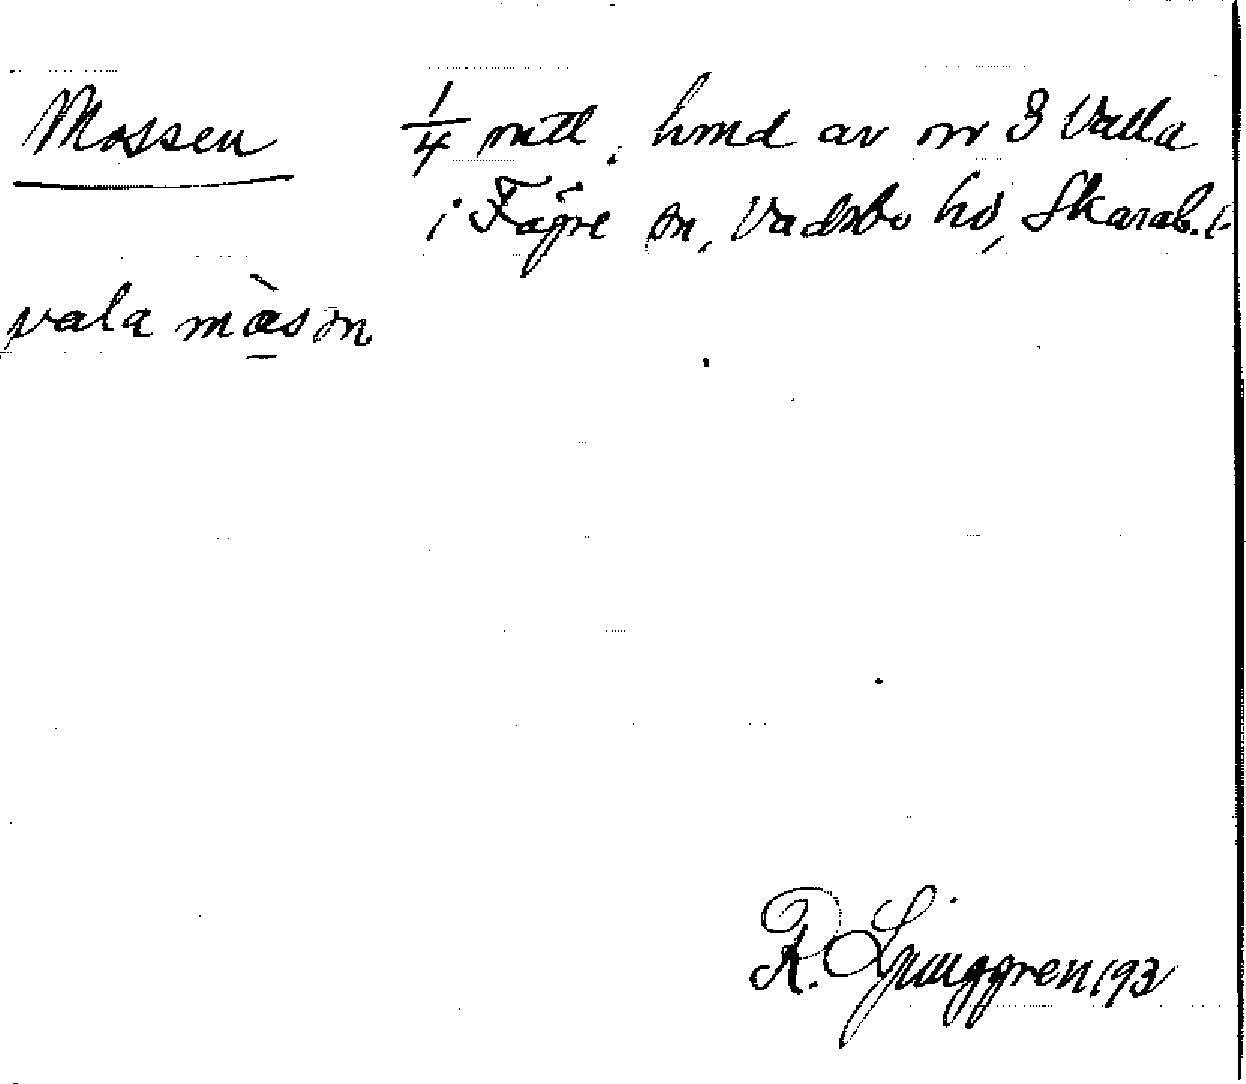 Mossen 1/4 mtl, hmd av nr 3 Valla
i Fägre sn, Vadsbo hd, Skarab. l.
vala màsɷn
R. Ljunggren, 193